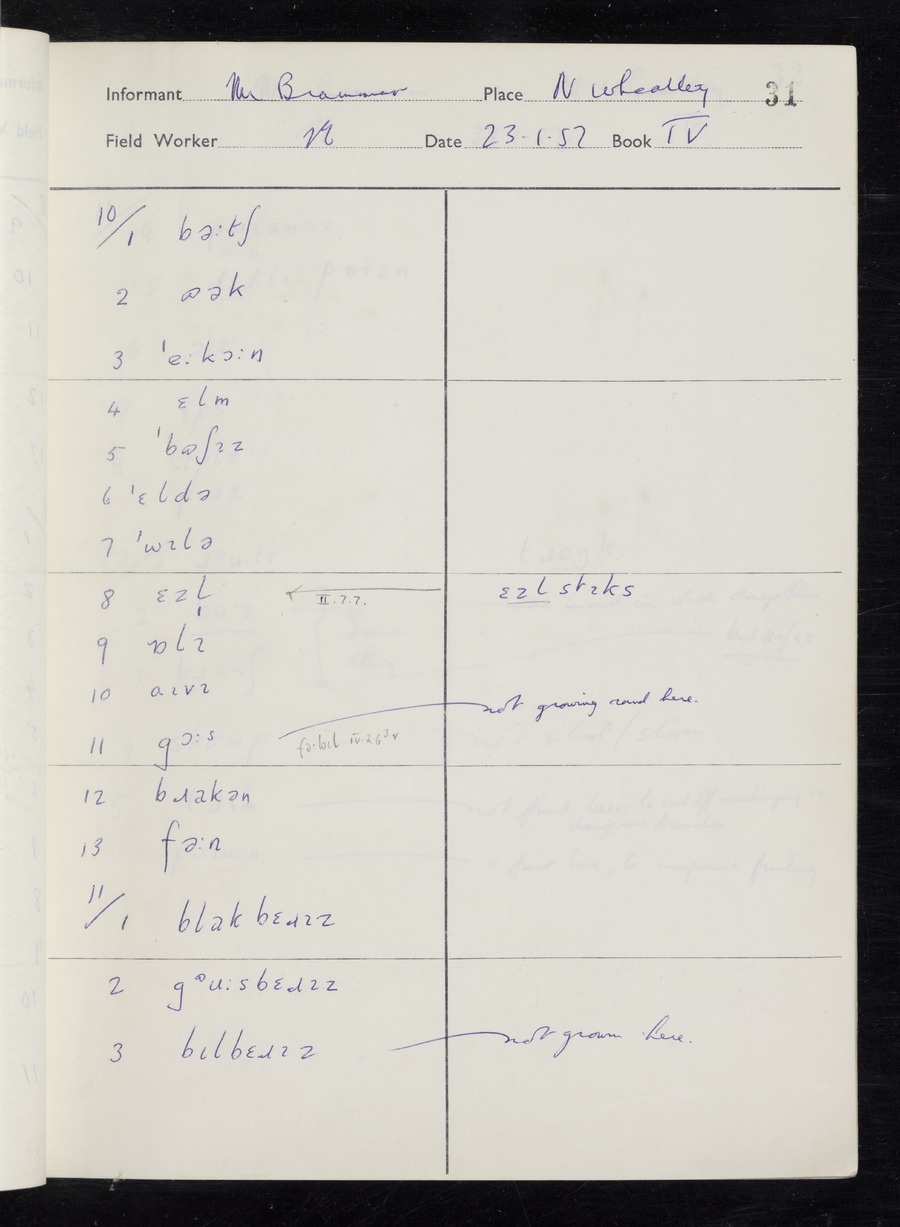 Informant Mr Brammar Place N Wheatley 31
Field Worker Date 23.1.57 Book IV
10/1 bəːtʃ
2 ɷək
3 ˈeːkɔːn
4 ɛlm
5 ˈbɷʃɪz
6 ˈɛldə
7 ˈwɪlə
8 ɛzl̩ II.7.7. ɛzl stɪks
9 ɒlɪ
10 aɪvɪ
not growing round here.
11 gɔːs
12 bɹakən
13 fəːn
11/1 blakbɛɹɪz
2 gᵊuːsbɛɹɪz
3 bɪlbɛɹɪz not grown here.